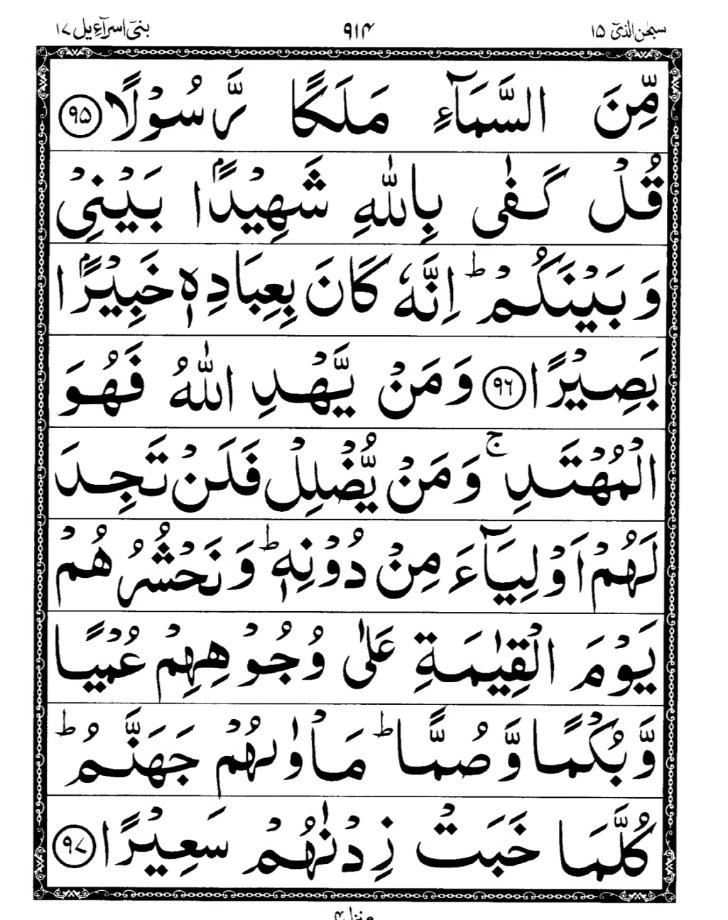 سبحٰن الذیٓ ۱۵ ۹۱۴ بنیٓ اسرآءیل ۱۷
مِّنَ السَّمَآءِ مَلَكًا رَّسُوْلًا ﴿۹۵﴾
قُلْ كَفٰی بِاللّٰهِ شَهِیْدًۢا بَیْنِیْ
وَ بَیْنَكُمْ ؕ اِنَّهٗ كَانَ بِعِبَادِهٖ خَبِیْرًۢا
بَصِیْرًا ﴿۹۶﴾ وَ مَنْ یَّهْدِ اللّٰهُ فَهُوَ
الْمُهْتَدِ ۚ وَ مَنْ یُّضْلِلْ فَلَنْ تَجِدَ
لَهُمْ اَوْلِیَآءَ مِنْ دُوْنِهٖ ؕ وَ نَحْشُرُهُمْ
یَوْمَ الْقِیٰمَةِ عَلٰی وُجُوْهِهِمْ عُمْیًا
وَّ بُكْمًا وَّ صُمًّا ؕ مَاْوٰىهُمْ جَهَنَّمُ ؕ
كُلَّمَا خَبَتْ زِدْنٰهُمْ سَعِیْرًا ﴿۹۷﴾
منزل ۴